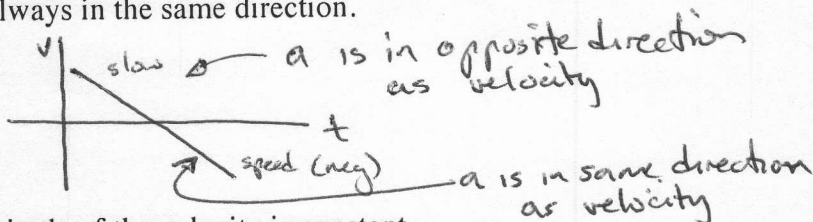 lways in the same direction.
v
slow
a is in opposite direction
as velocity
t
speed (neg)
a is in same direction
as velocity